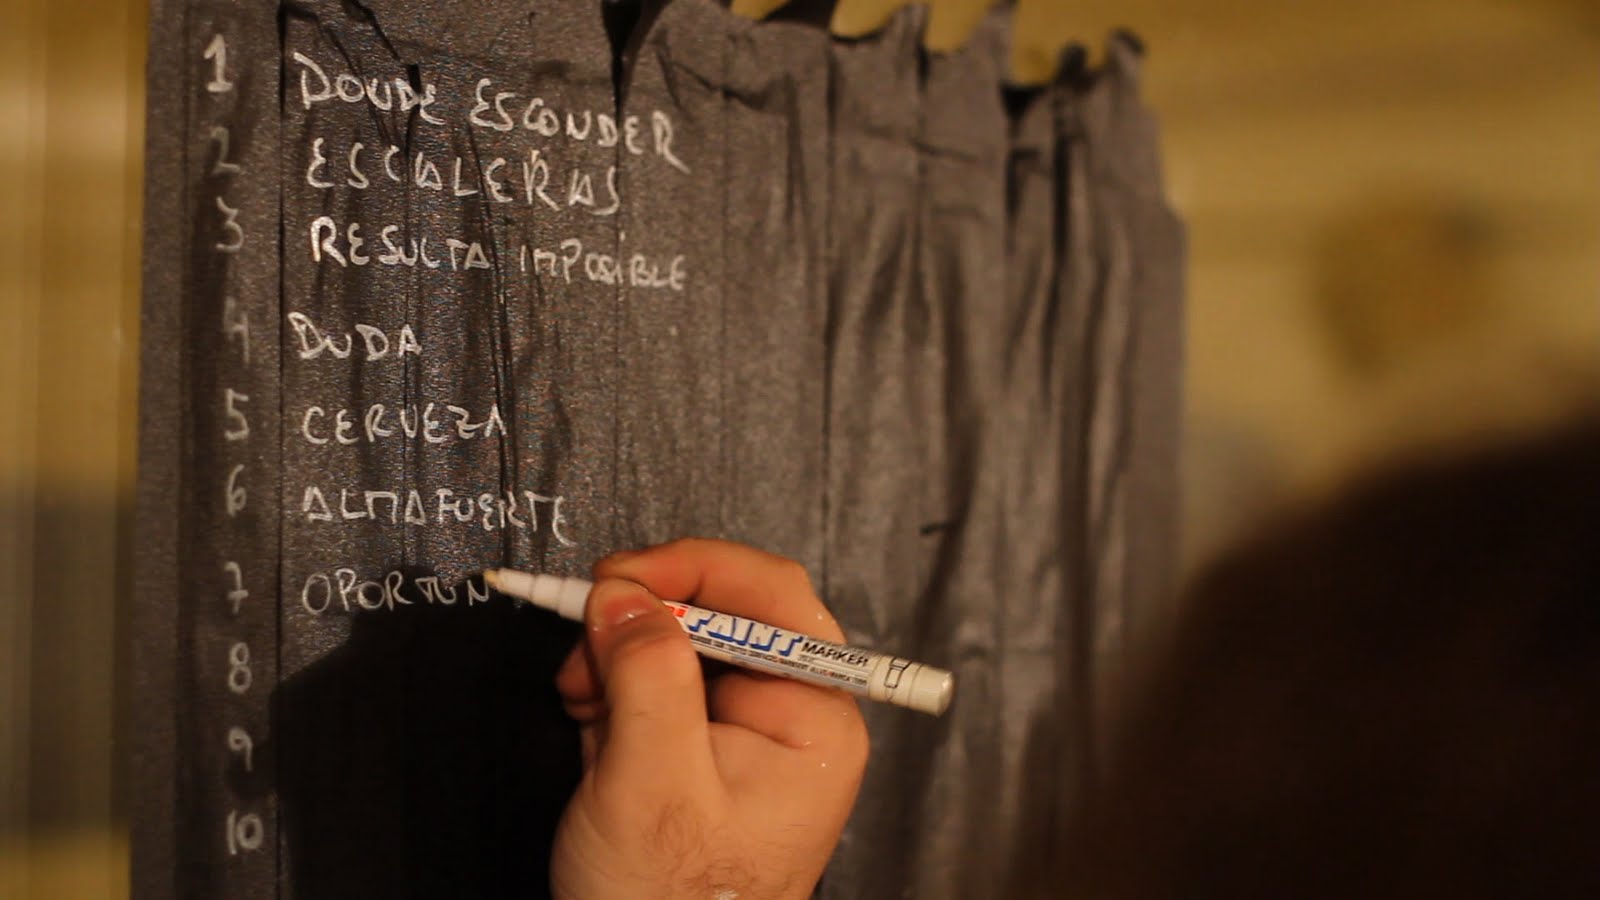 1 DONDE ESCONDER
2 ESCALERAS
3 RESULTA IMPOSIBLE
4 DUDA
5 CERVEZA
6 ALMAFUERTE
7 OPORTUN
8
9
10
PAINT MARKER